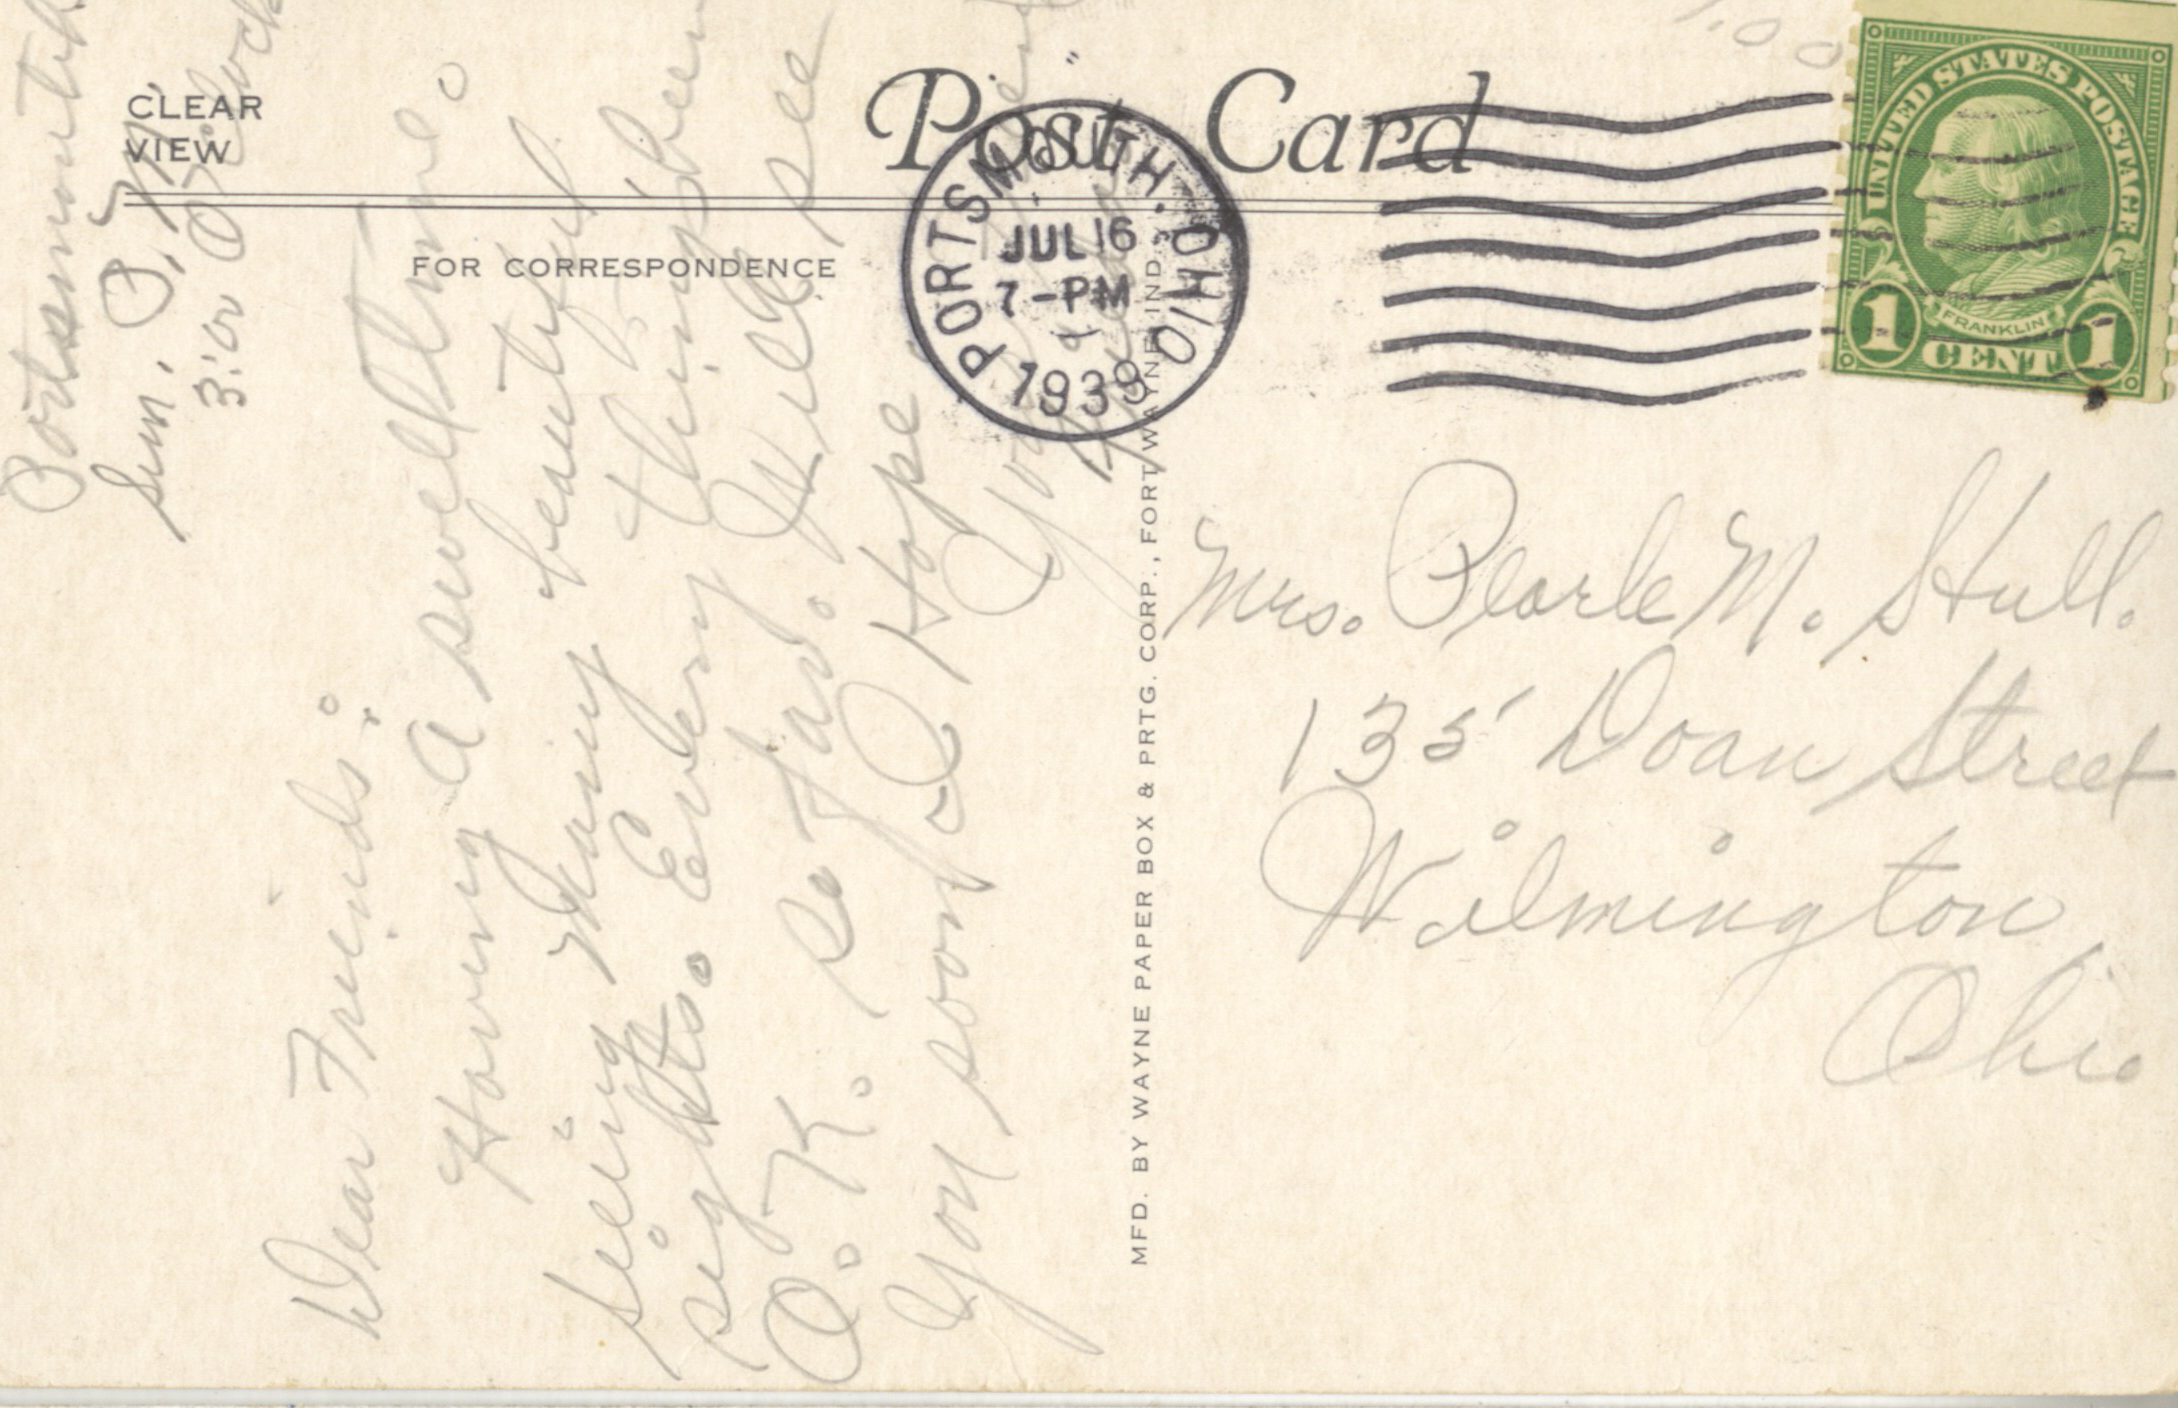 CLEAR
VIEW
Post Card
FOR CORRESPONDENCE
PORTSMOUTH, OHIO
JUL 16
7-PM
1939
UNITED STATES POSTAGE
FRANKLIN
1 CENT 1
Portsmouth
Sun. P.M.
3:00 O'clock
Dear Friends:
Having a swell time.
seeing many beautiful
sights. Every thing been
O.K. so far. Will see
you soon I Hope.
Your
MFD. BY WAYNE PAPER BOX & PRTG. CORP., FORT WAYNE, IND.
Mrs. Pearle M. Hull.
135 Doan Street
Wilmington,
Ohio